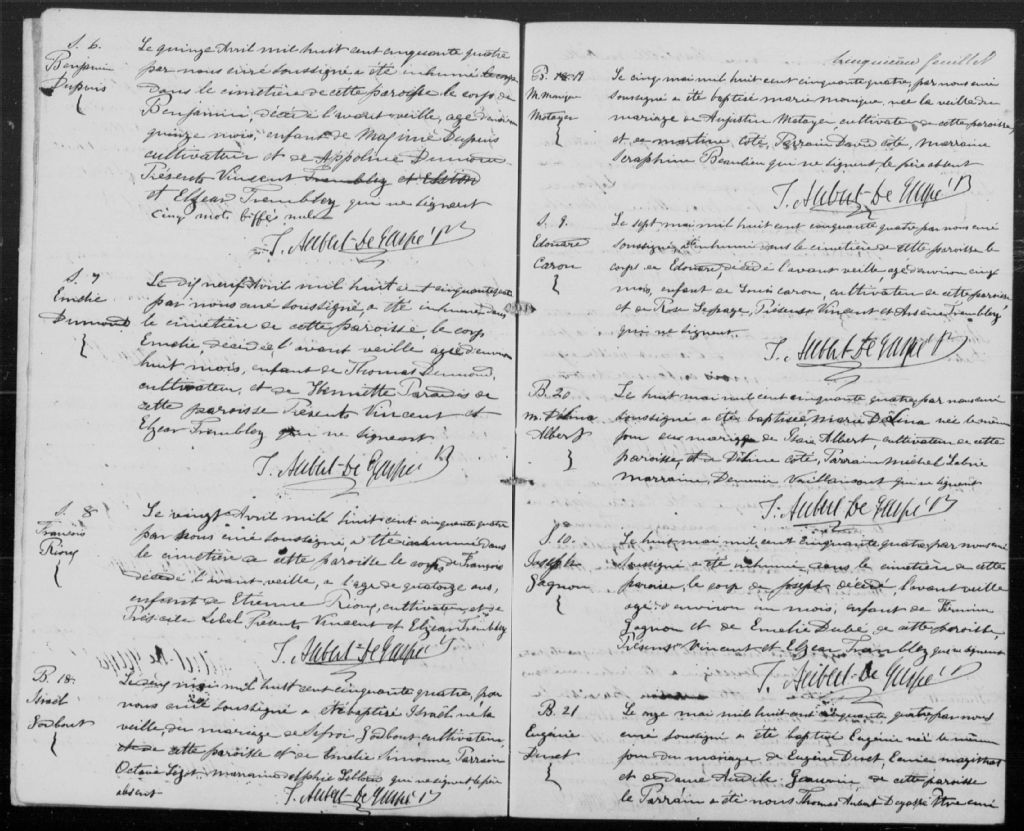 S. 6.
Benjamin
Dupuis
Le quinze Avril mil huit cent cinquante quatre
par nous curé soussigné a été inhumé le corps
dans le cimetière de cette paroisse le corps de
Benjamin, décédé l'avant veille, agé d'environ
quinze mois, enfant de Maxime Dupuis
cultivateur et de Appoline Dumond
Présents Vincent Tremblez et
et Elzear Tremblez qui ne signent
cinq mots biffés nuls
T. Aubert-De Gaspé Ptre
S. 7
Emelie
Dumond
Le dix neuf Avril mil huit cent cinquante quatre
par nous curé soussigné, a été inhumé, dans
le cimetière de cette paroisse, le corps
Emelie, décédée l'avant veille agée d'environ
huit mois, enfant de Thomas Dumond,
cultivateur, et de Henriette Paradis de
cette paroisse Présents Vincent et
Elzear Tremblez qui ne signent
T. Aubert-De Gaspé Ptre
S. 8
Francois
Rioux
Le vingt Avril mil huit cent cinquante quatre
par nous curé soussigné, a été inhumé dans
le cimetière de cette paroisse le corps de François
décédé l'avant veille, a l'age de quatorze ans,
enfant de Etienne Rioux, cultivateur, et de
Lebel Présents Vincent et Elzear Tremblez
T. Aubert-De Gaspé Ptre
B. 18.
Israël
Gadbout
Le cinq mai mil huit cent cinquante quatre, par
nous curé soussigné a été baptisé Israël né la
veille, du mariage de Gadbout, cultivateur,
de cette paroisse et de Emelie Simonne, Parrain
Octave marraine delphie Leblond qui ne signent le père
absent
T. Aubert-De Gaspé Ptre
cinquieme feuillet
B. 19
M. Monique
Metayer
Le cinq mai mil huit cent cinquante quatre, par nous curé
soussigné a été baptisé marie monique, née la veille du
mariage de Augustin Metayer cultivateur de cette paroisse
et de martine coté, Parrain David coté, marraine
Seraphine Beaulieu qui ne signent le père absent
T. Aubert-De Gaspé Ptre
S. 9.
Edouard
Caron
Le sept mai mil huit cent cinquante quatre par nous curé
soussigné, a été inhumé dans le cimetière de cette paroisse le
corps de Edouard, décédé l'avant veille agé d'environ cinq
mois, enfant de Louis caron, cultivateur de cette paroisse
et de Rose Lepage, Présents Vincent et Arsène Tremblez
qui ne signent.
T. Aubert-De Gaspé Ptre
B. 20
m. Délina
Albert
Le huit mai mil huit cent cinquante quatre, par nous curé
soussigné a été baptisée, marie Délina née le même
jour du mariage de Albert, cultivateur de cette
paroisse, et de Déline coté, Parrain Michel Labrie
marraine, Vaillancourt qui ne signent
T. Aubert De Gaspé Ptre
S. 10.
Joseph
Gagnon
Le huit mai mil, cent cinquante quatre, par nous curé
soussigné a été inhumé dans le cimetière de cette
paroisse, le corps de joseph décédé, l'avant veille
agé d'environ un mois, enfant de Firmin
Gagnon et de Emelie Dubé de cette paroisse,
Présents Vincent et Elzear Tremblez qui ne signent
T. Aubert-De Gaspé Ptre
B. 21
Eugénie
Dinet
Le onze mai mil huit cent cinquante quatre par nous
curé soussigné a été baptisé Eugénie née le même
jour du mariage de Eugène Dinet, Ecuier magistrat
et de Dame Gauvin, de cette paroisse
le Parrain a été nous Thomas Aubert Degaspé Ptre curé